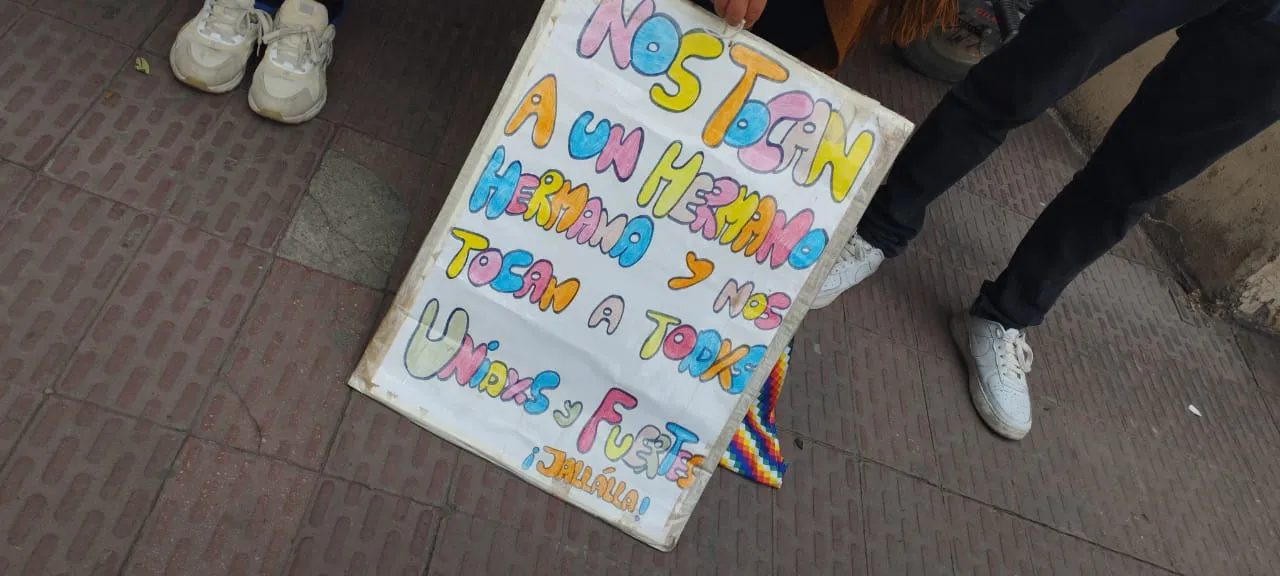 NOS TOCAN
A UN HERMANO
HERMANA Y NOS
TOCAN A TODXS
UNIDXS Y FUERTES
¡JALLÁLLA!